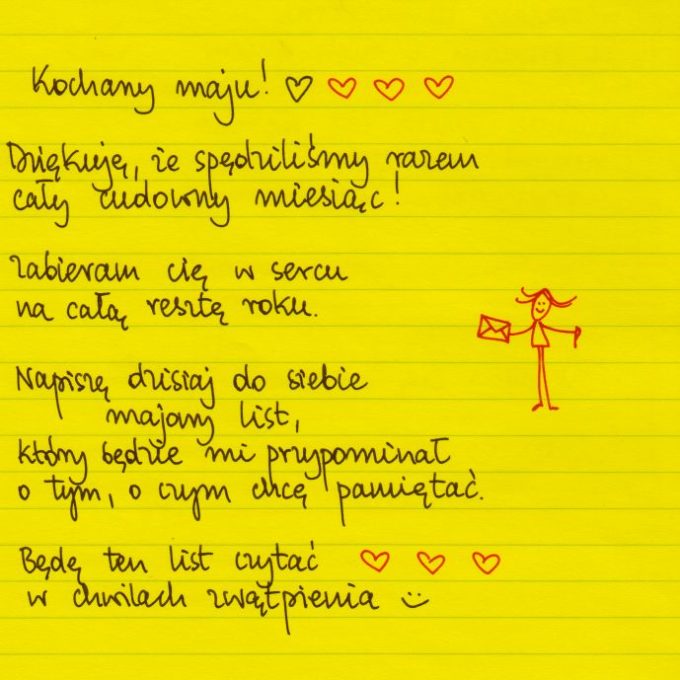 Kochany maju! ♡ ♡ ♡ ♡
Dziękuję, że spędziliśmy razem
cały cudowny miesiąc!
Zabieram cię w sercu
na całą resztę roku.
Napiszę dzisiaj do siebie
majowy list,
który będzie mi przypominał
o tym, o czym chcę pamiętać.
Będę ten list czytać ♡ ♡ ♡
w chwilach zwątpienia :)